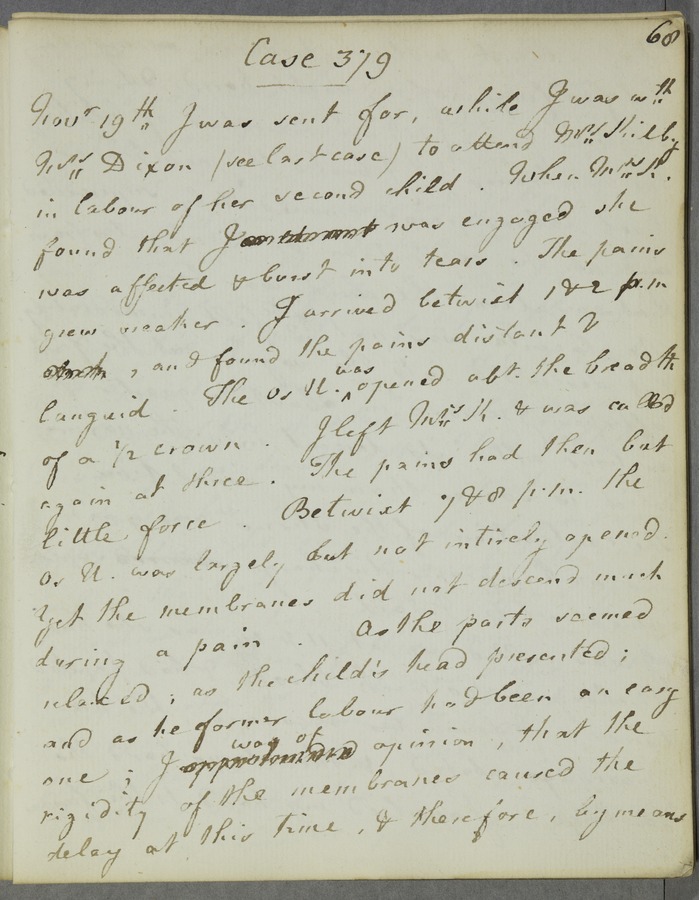 68
Case 379
Novr 19th I was sent for, while I was wth
Mrs Dixon (see last case) to attend Mrs Kilby
in labour of her second child. When Mrs K.
found that I was engaged she
was affected & burst into tears. The pains
grew weaker. I arrived betwixt 1 & 2 p.m
, and found the pains distant &
languid. The os U. was opened abt. the breadth
of a 1/2 crown. I left Mrs K. & was called
again at three. The pains had then but
little force. Betwixt 7 & 8 p.m. the
os U. was largely but not intirely opened.
Yet the membranes did not descend much
during a pain. As the parts seemed
relaxed; as the child's head presented;
and as he former labour had been an easy
one; I way of opinion, that the
rigidity of the membranes caused the
delay at this time, & therefore, by means